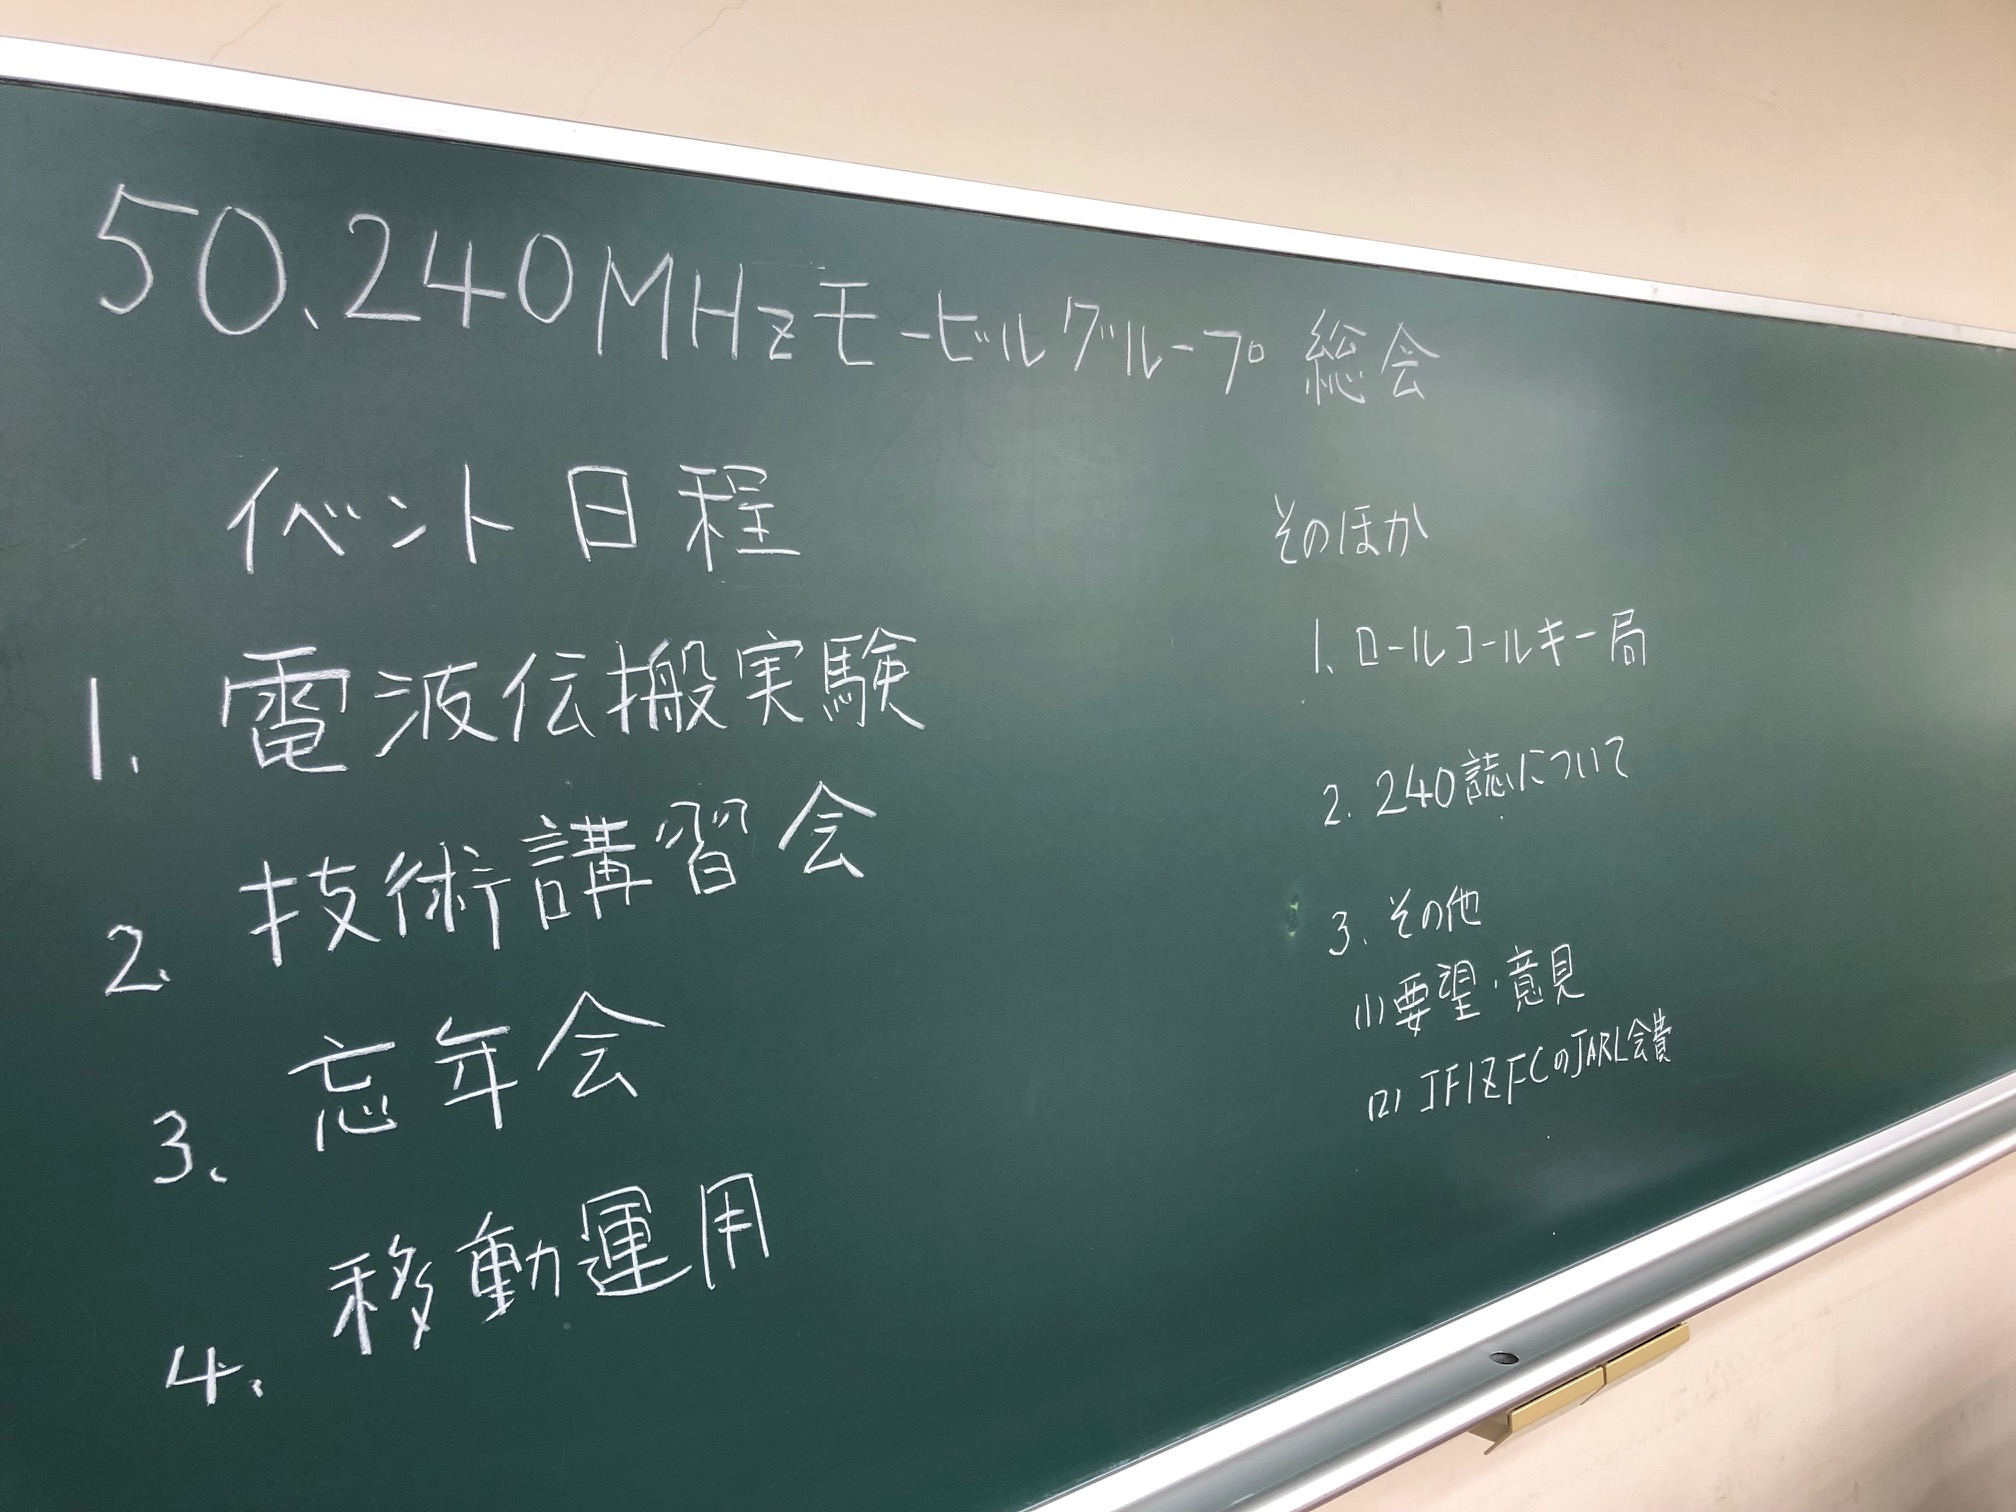 50.240MHzモービルグループ 総会
イベント日程
1. 電波伝搬実験
2. 技術講習会
3. 忘年会
4. 移動運用
そのほか
1. ロールコールキー局
2. 240誌について
3. その他
(1) 要望・意見
(2) JF1ZFCのJARL会費